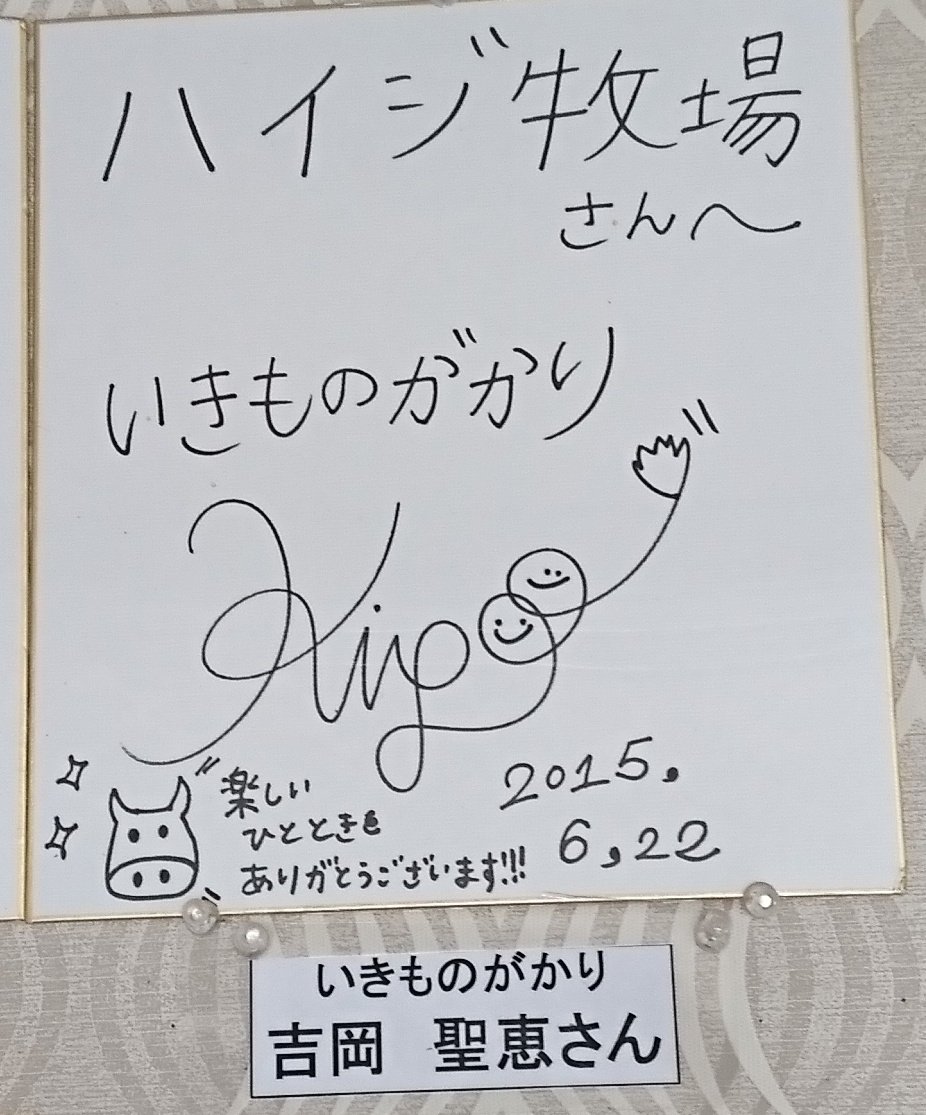 ハイジ牧場
さんへ
いきものがかり
Kiyoe
楽しい
ひとときを
ありがとうございます!!!
2015.
6,22
いきものがかり
吉岡 聖恵さん